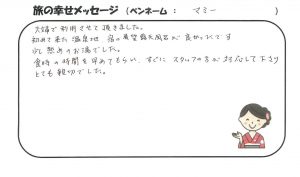 旅の幸せメッセージ (ペンネーム： マミー )
夫婦で利用させて頂きました。
初めて来た温泉地 宿の展望露天風呂が良かったです
久し振りのお湯でした。
食時の時間を早めてもらい、すぐに スタッフの方が対応して下さり
とても親切でした。